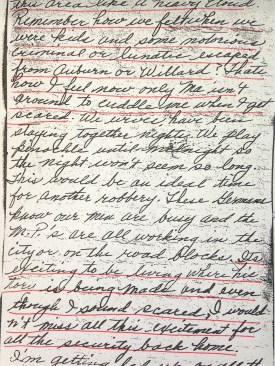 this area like a heavy cloud.
Remember how we felt when we
were kids and some notorious
criminal or lunatic escaped
from Auburn or Willard? Thats
how I feel now only Ma isn't
around to cuddle me when I get
scared. We wives have been
staying together nights. We play
pinochle until midnight so
the night won't seem so long.
This would be an ideal time
for another robbery. These Germans
know our men are busy and the
M.P.'s are all working in the
city or on the road blocks. Its
exciting to be living where his
tory is being made and even
though I sound scared, I would
n't miss all this excitement for
all the security back home.
I'm getting